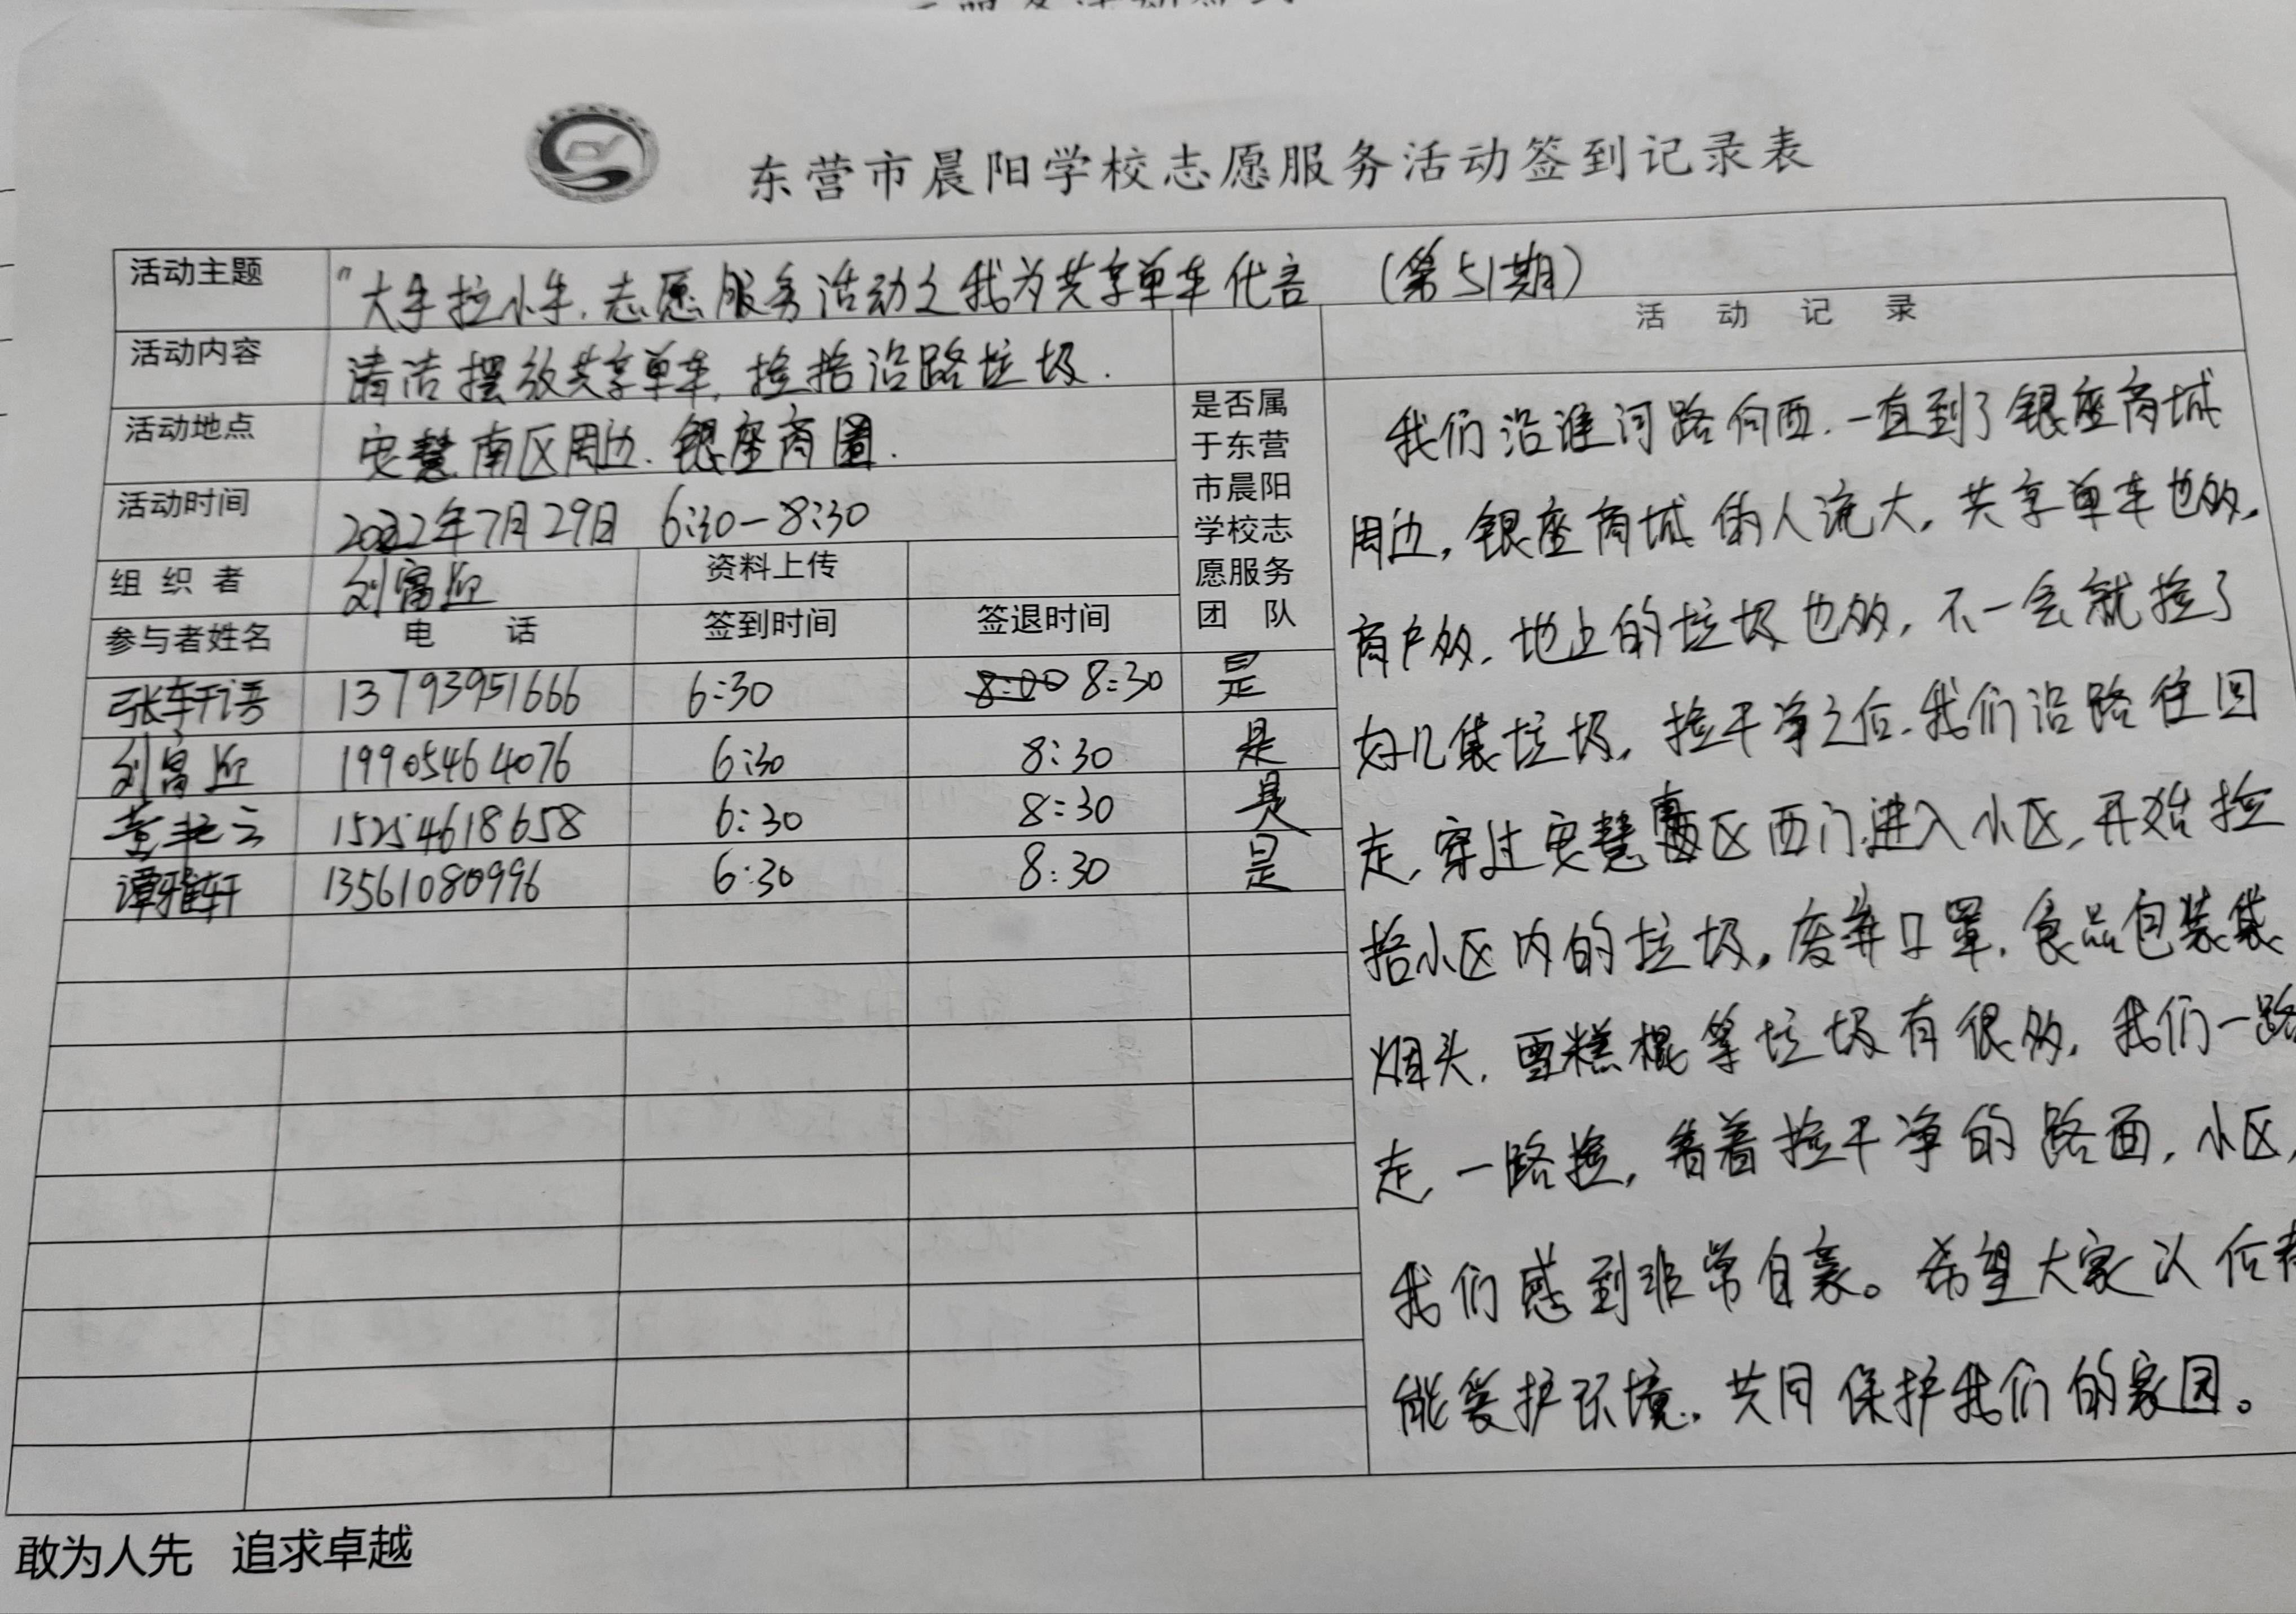 东营市晨阳学校志愿服务活动签到记录表
活动主题 "大手拉小手.志愿服务活动之我为共享单车代言 （第51期）
活动记录
活动内容 清洁摆放共享单车,捡拾沿路垃圾.
活动地点 安慧南区周边.银座商圈.
活动时间 2022年7月29日 6:30-8:30
组织者 刘富迎 资料上传
参与者姓名 电话 签到时间 签退时间
是否属
于东营
市晨阳
学校志
愿服务
团队
张轩语 13793951666 6:30 8:00 8:30 是
刘富迎 19905464076 6:30 8:30 是
董艳云 15254618658 6:30 8:30 是
谭雅轩 13561080996 6:30 8:30 是
我们沿淮河路向西.一直到了银座商城
周边,银座商城的人流大,共享单车也多,
商户多.地上的垃圾也多,不一会就捡了
好几袋垃圾,捡干净之后.我们沿路往回
走,穿过安慧南区西门,进入小区,开始捡
拾小区内的垃圾,废弃口罩.食品包装袋
烟头.雪糕棍等垃圾有很多,我们一路
走,一路捡,看着捡干净的路面,小区,
我们感到非常自豪。希望大家以后都
能爱护环境,共同保护我们的家园。
敢为人先 追求卓越